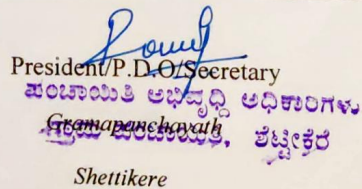 President/P.D.O/Secretary
ಪಂಚಾಯಿತಿ ಅಭಿವೃದ್ಧಿ ಅಧಿಕಾರಿಗಳು
Gramapanchayath
ಗ್ರಾಮ ಪಂಚಾಯಿತಿ, ಶೆಟ್ಟೀಕೆರೆ
Shettikere